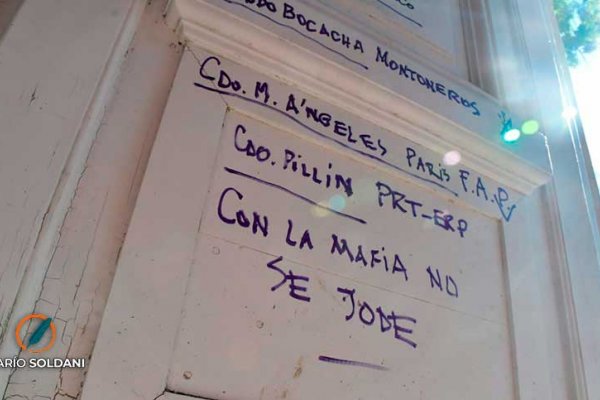 BOCACHA MONTONEROS
CDO. M. ÁNGELES PARIS F.A.P
CDO. PILLIN PRT-ERP
CON LA MAFIA NO
SE JODE
ARIO SOLDANI